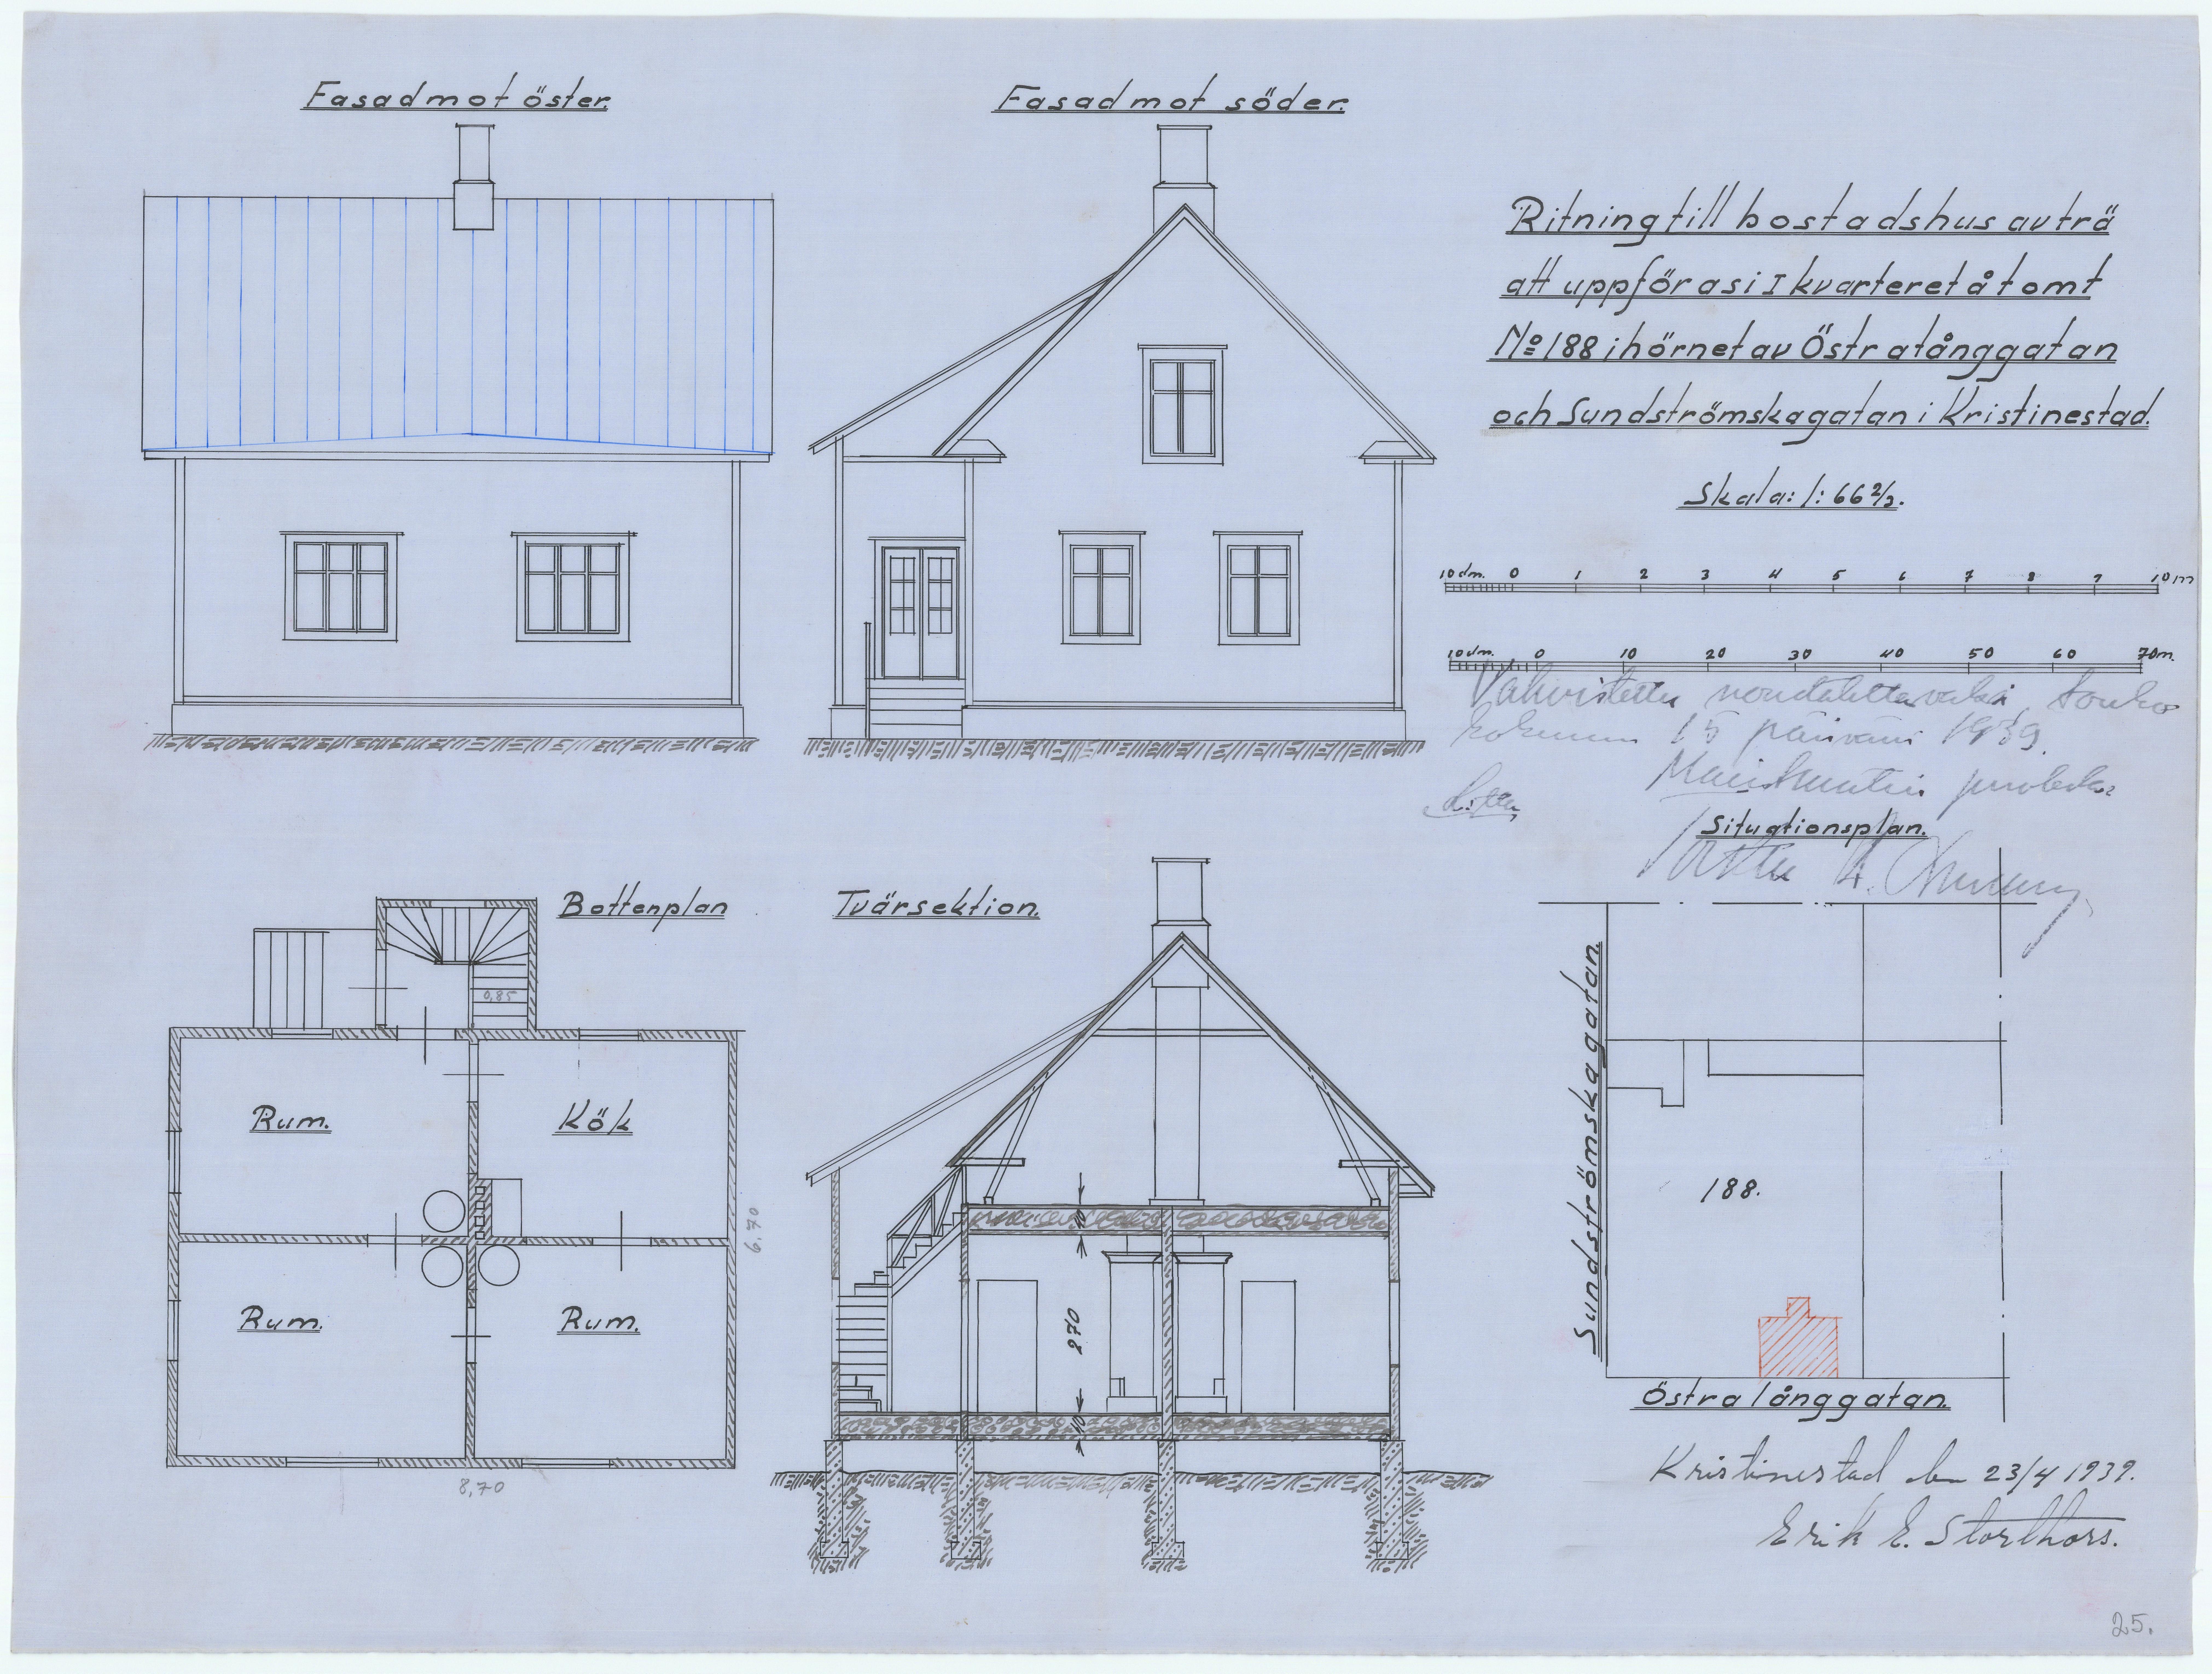 Fasad mot öster.
Fasad mot söder.
Ritning till bostadshus av trä
att uppföras i I kvarteret å tomt
No 188 i hörnet av Östra långgatan
och Sundströmskagatan i Kristinestad.
Skala: 1:66 2/3.
10 dm. 0 1 2 3 4 5 6 7 8 9 10 m
10 dm. 0 10 20 30 40 50 60 70 m.
Vahvistettu noudatettavaksi, touko
kokuun 15 päivänä 1939.
Maistraatin puolesta:
Situationsplan.
Bottenplan
0,85
Rum.
Kök
Rum.
Rum.
6,70
8,70
Tvärsektion.
270
40
Sundströmskagatan.
188.
Östra långgatan.
Kristinestad den 23/4 1939.
Erik E. Storthors.
25.